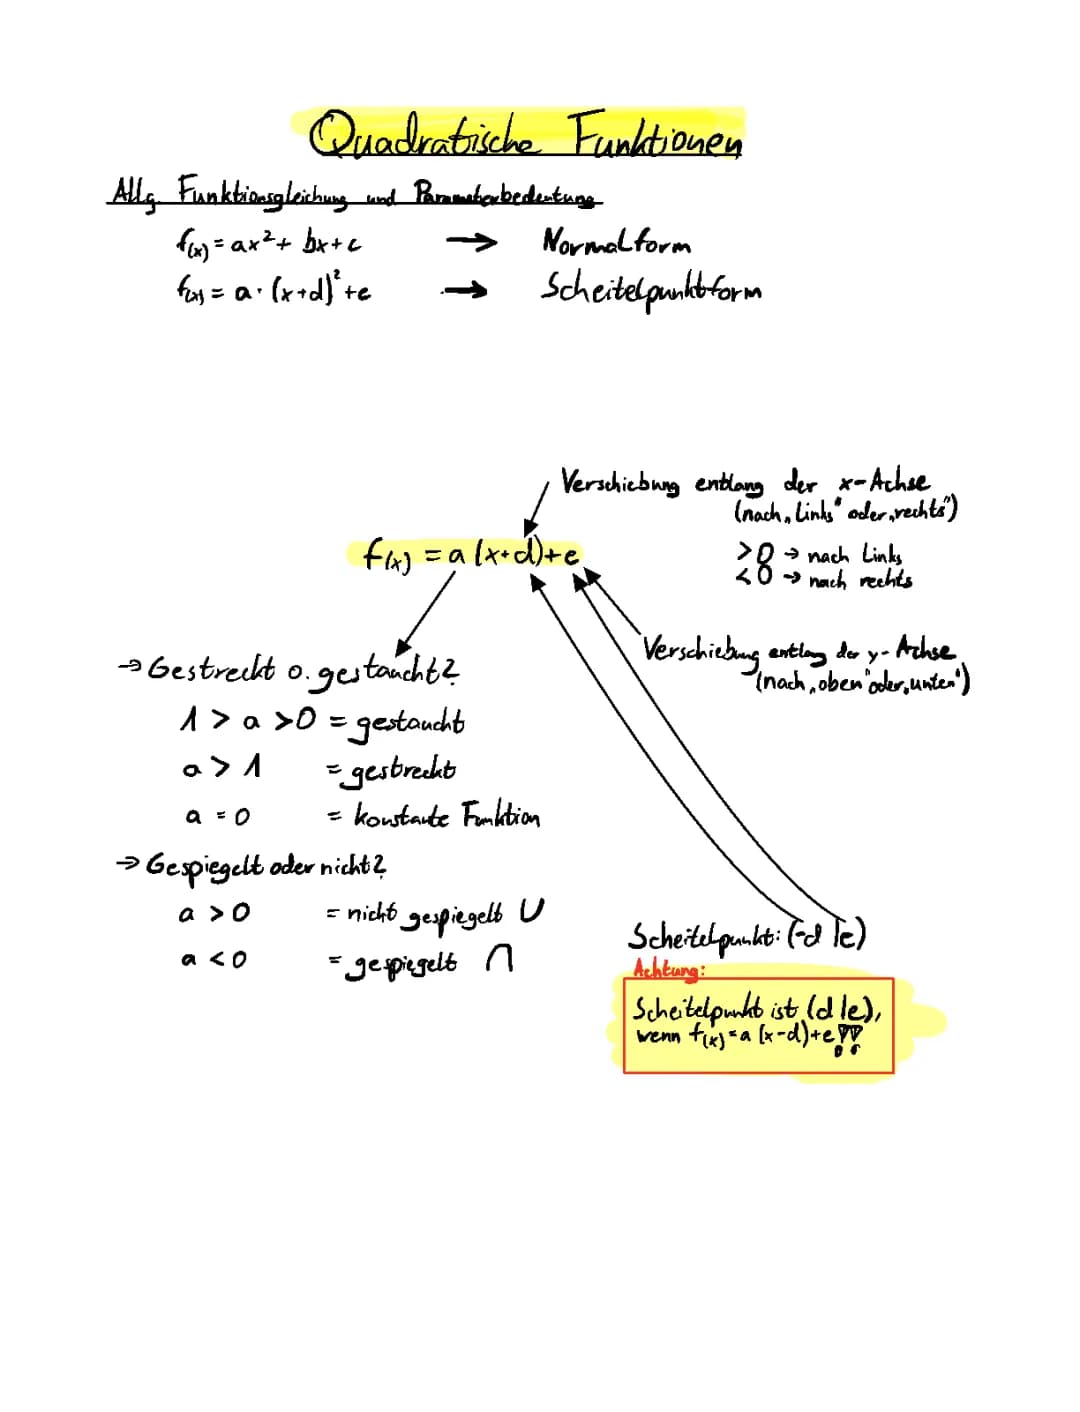 Quadratische Funktionen
Allg. Funktionsgleichung und Parameterbedeutung
f(x) = ax² + bx + c → Normalform
f(x) = a · (x+d)² + e → Scheitelpunktform
Verschiebung entlang der x-Achse
(nach „Links“ oder „rechts“)
f(x) = a (x+d)+e
>0 → nach Links
<0 → nach rechts
Verschiebung entlang der y-Achse
(nach „oben“ oder „unten“)
→ Gestreckt o. gestaucht?
1 > a > 0 = gestaucht
a > 1 = gestreckt
a = 0 = konstante Funktion
→ Gespiegelt oder nicht?
a > 0 = nicht gespiegelt ∪
a < 0 = gespiegelt ∩
Scheitelpunkt: (-d |e)
Achtung:
Scheitelpunkt ist (d |e),
wenn f(x) = a (x-d)+e!!